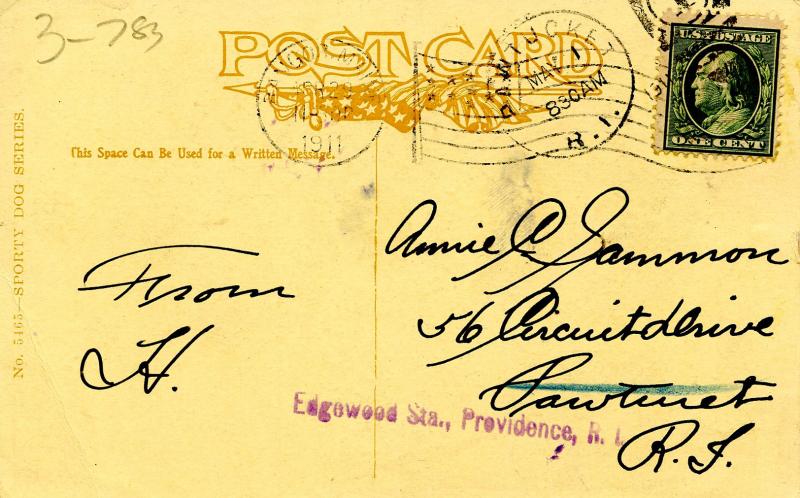 3-783
POST CARD
PAWTUCKET
MAY 1
830AM
R. I.
1911
U.S. POSTAGE
ONE CENT
This Space Can Be Used for a Written Message.
No. 5465—SPORTY DOG SERIES.
From
H.
Annie C. Gammon
56 Circuit drive
Pawtuxet
R. I.
Edgewood Sta., Providence, R. I.